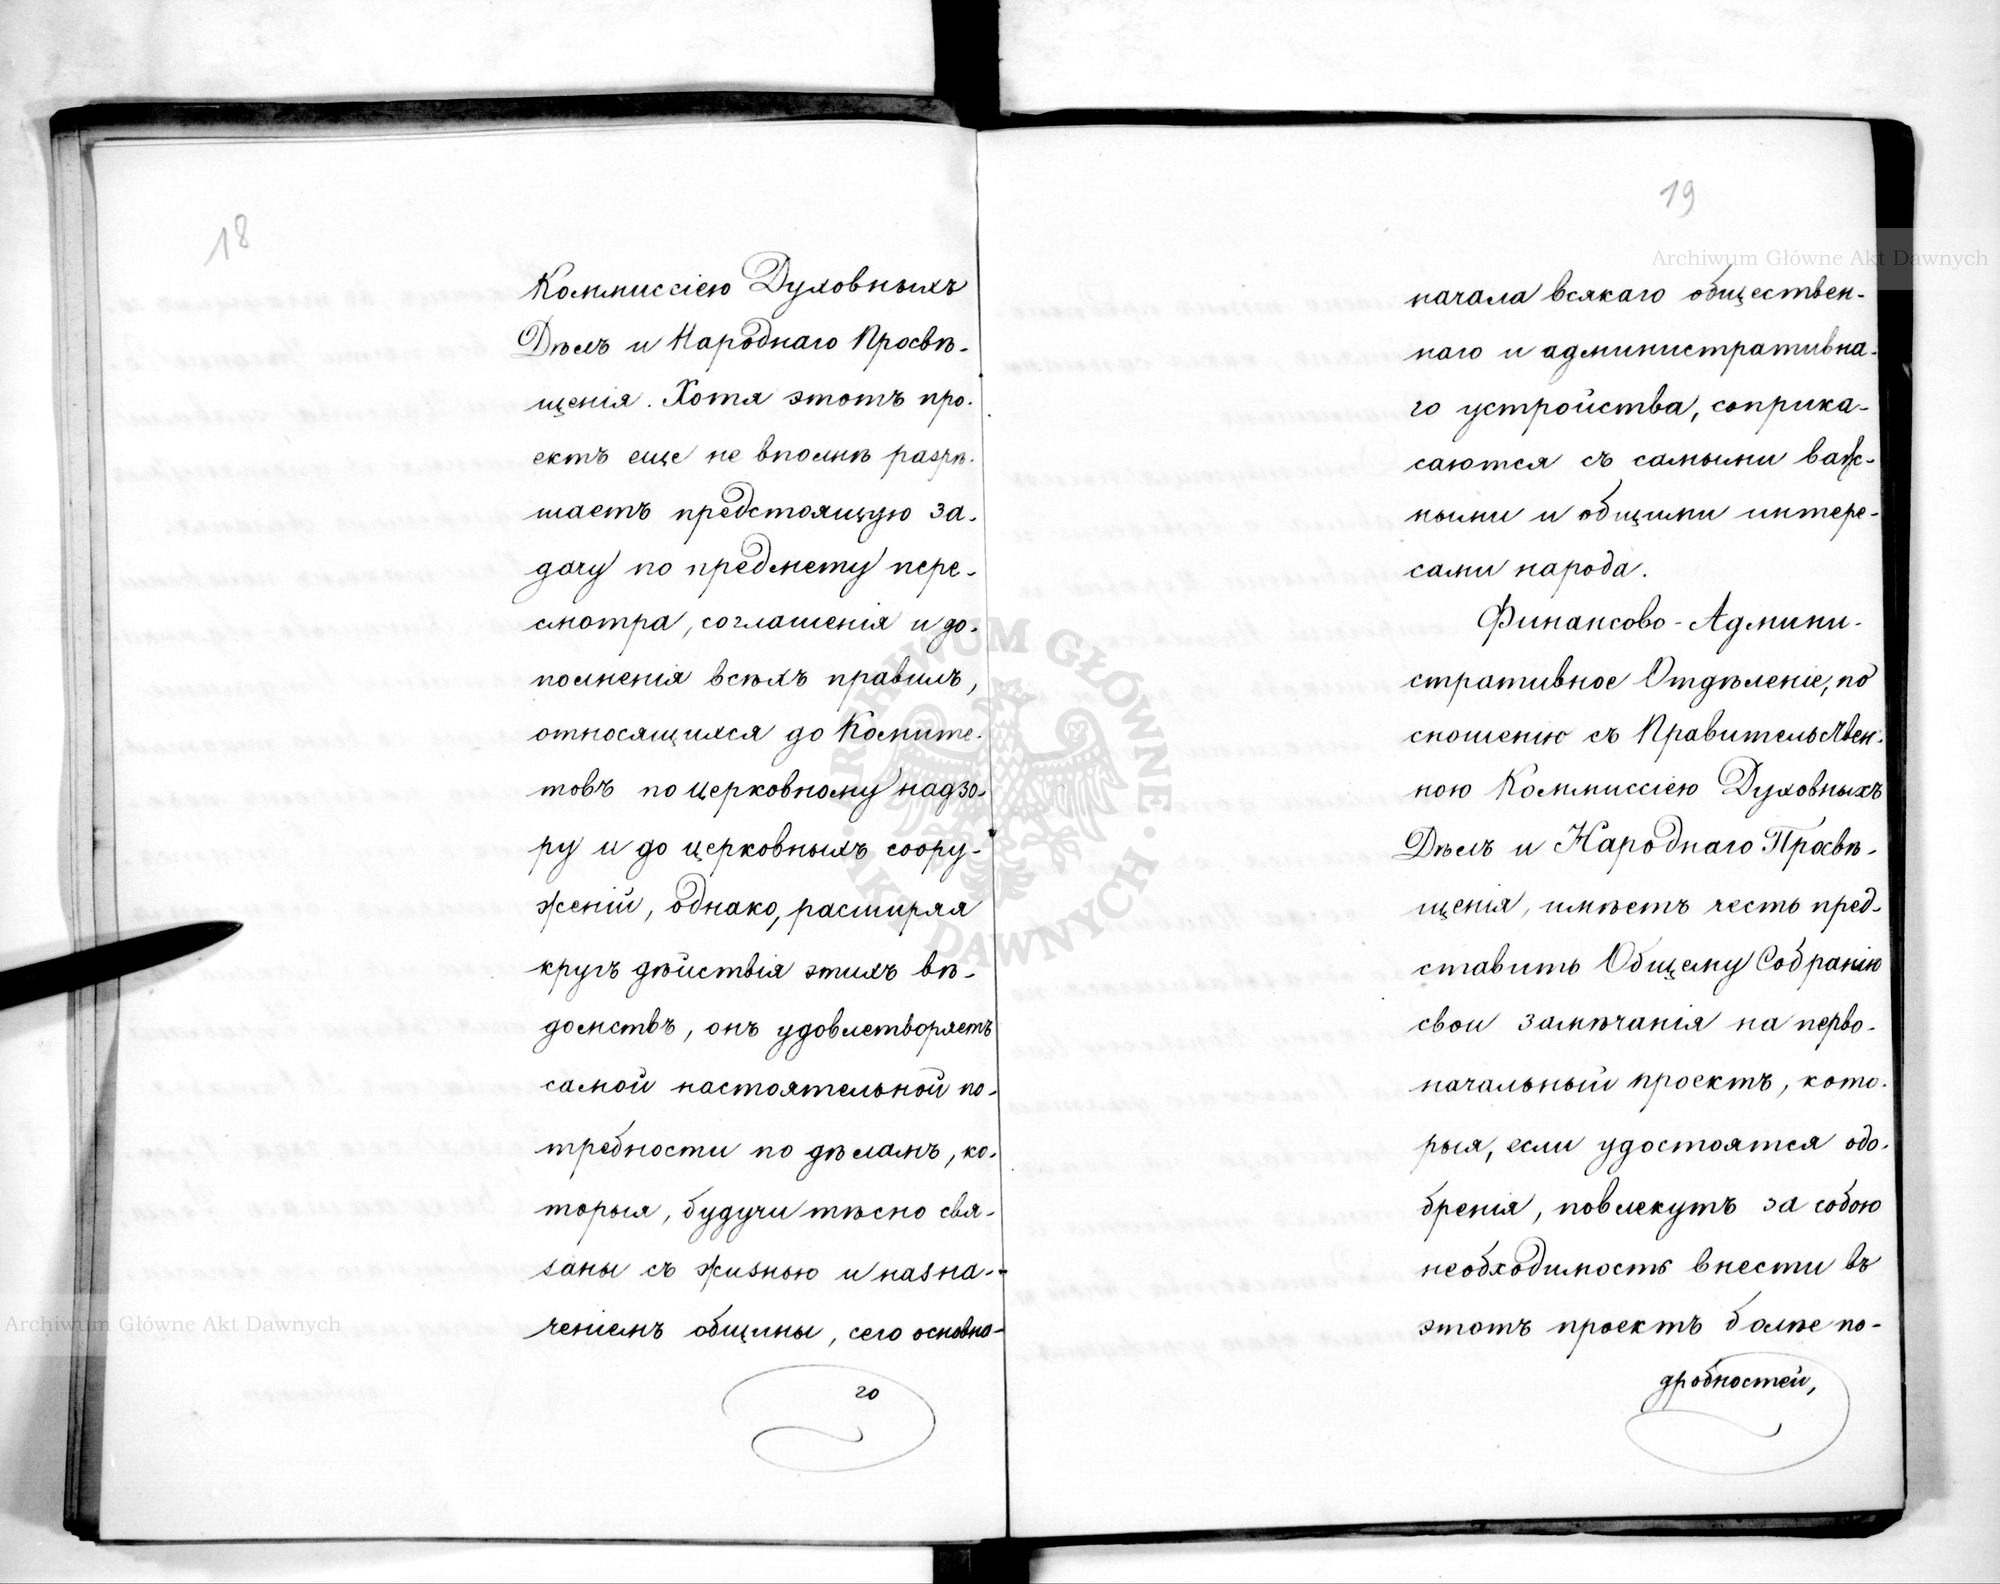 18
Коммиссіею Духовныхъ
Дѣлъ и Народнаго Просвѣ-
щенія. Хотя этотъ про-
ектъ еще не вполнѣ разрѣ-
шаетъ предстоящую за-
дачу по предмету пере-
смотра, соглашенія и до-
полненія всѣхъ правилъ,
относящихся до Комите-
товъ по церковному надзо-
ру и до церковныхъ соору-
женій, однако, расширяя
кругъ дѣйствія этихъ вѣ-
домствъ, онъ удовлетворяетъ
самой настоятельной по-
требности по дѣламъ, ко-
торыя, будучи тѣсно свя-
заны съ жизнью и назна-
ченіемъ общины, сего основна-
го
19
начала всякаго обществен-
наго и административна-
го устройства, соприка-
саются съ самыми важ-
ными и общими интере-
сами народа.
Финансово-Админи-
стративное Отдѣленіе, по
сношенію съ Правительствен-
ною Коммиссіею Духовныхъ
Дѣлъ и Народнаго Просвѣ-
щенія, имѣетъ честь пред-
ставить Общему Собранію
свои замѣчанія на перво-
начальный проектъ, кото-
рыя, если удостоятся одо-
бренія, повлекутъ за собою
необходимость внести въ
этотъ проектъ болѣе по-
дробностей,
Archiwum Główne Akt Dawnych
Archiwum Główne Akt Dawnych
ARCHIWUM GŁÓWNE
AKT DAWNYCH